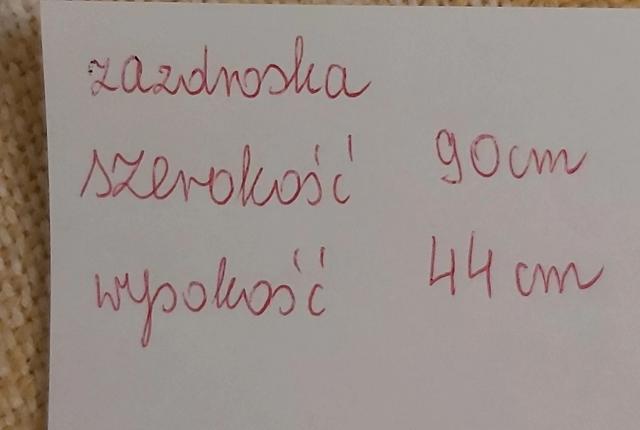 zazdroska
szerokość 90cm
wysokość 44 cm